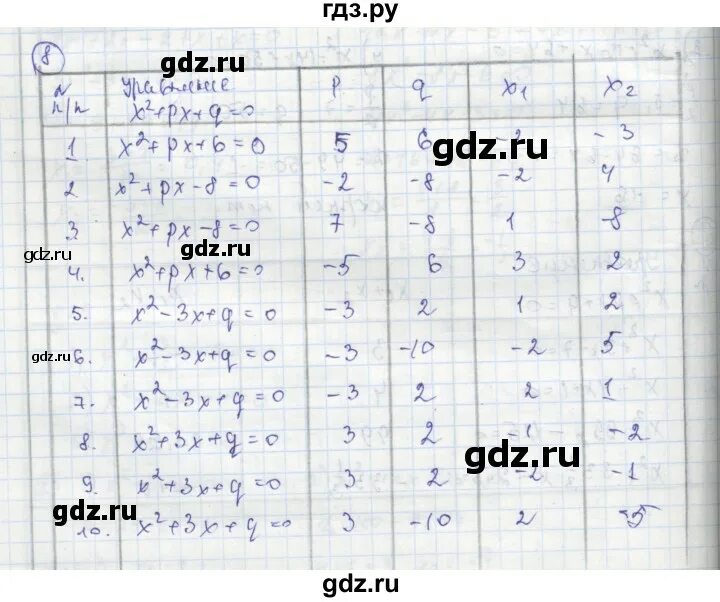 гдз.ру
8
N п/п Уравнение x²+px+q=0 p q x₁ x₂
1 x²+px+6=0 5 6 -2 -3
2 x²+px-8=0 -2 -8 -2 4
3. x²+px-8=0 7 -8 1 -8
4. x²+px+6=0 -5 6 3 2
5. x²-3x+q=0 -3 2 1 2
6. x²-3x+q=0 -3 -10 -2 5
7. x²-3x+q=0 -3 2 2 1
8. x²+3x+q=0 3 2 -1 -2
9. x²+3x+q=0 3 2 -2 -1
10. x²+3x+q=0 3 -10 2 -5
gdz.ru
gdz.ru
gdz.ru
gdz.ru
gdz.ru
gdz.ru
gdz.ru
gdz.ru
gdz.ru